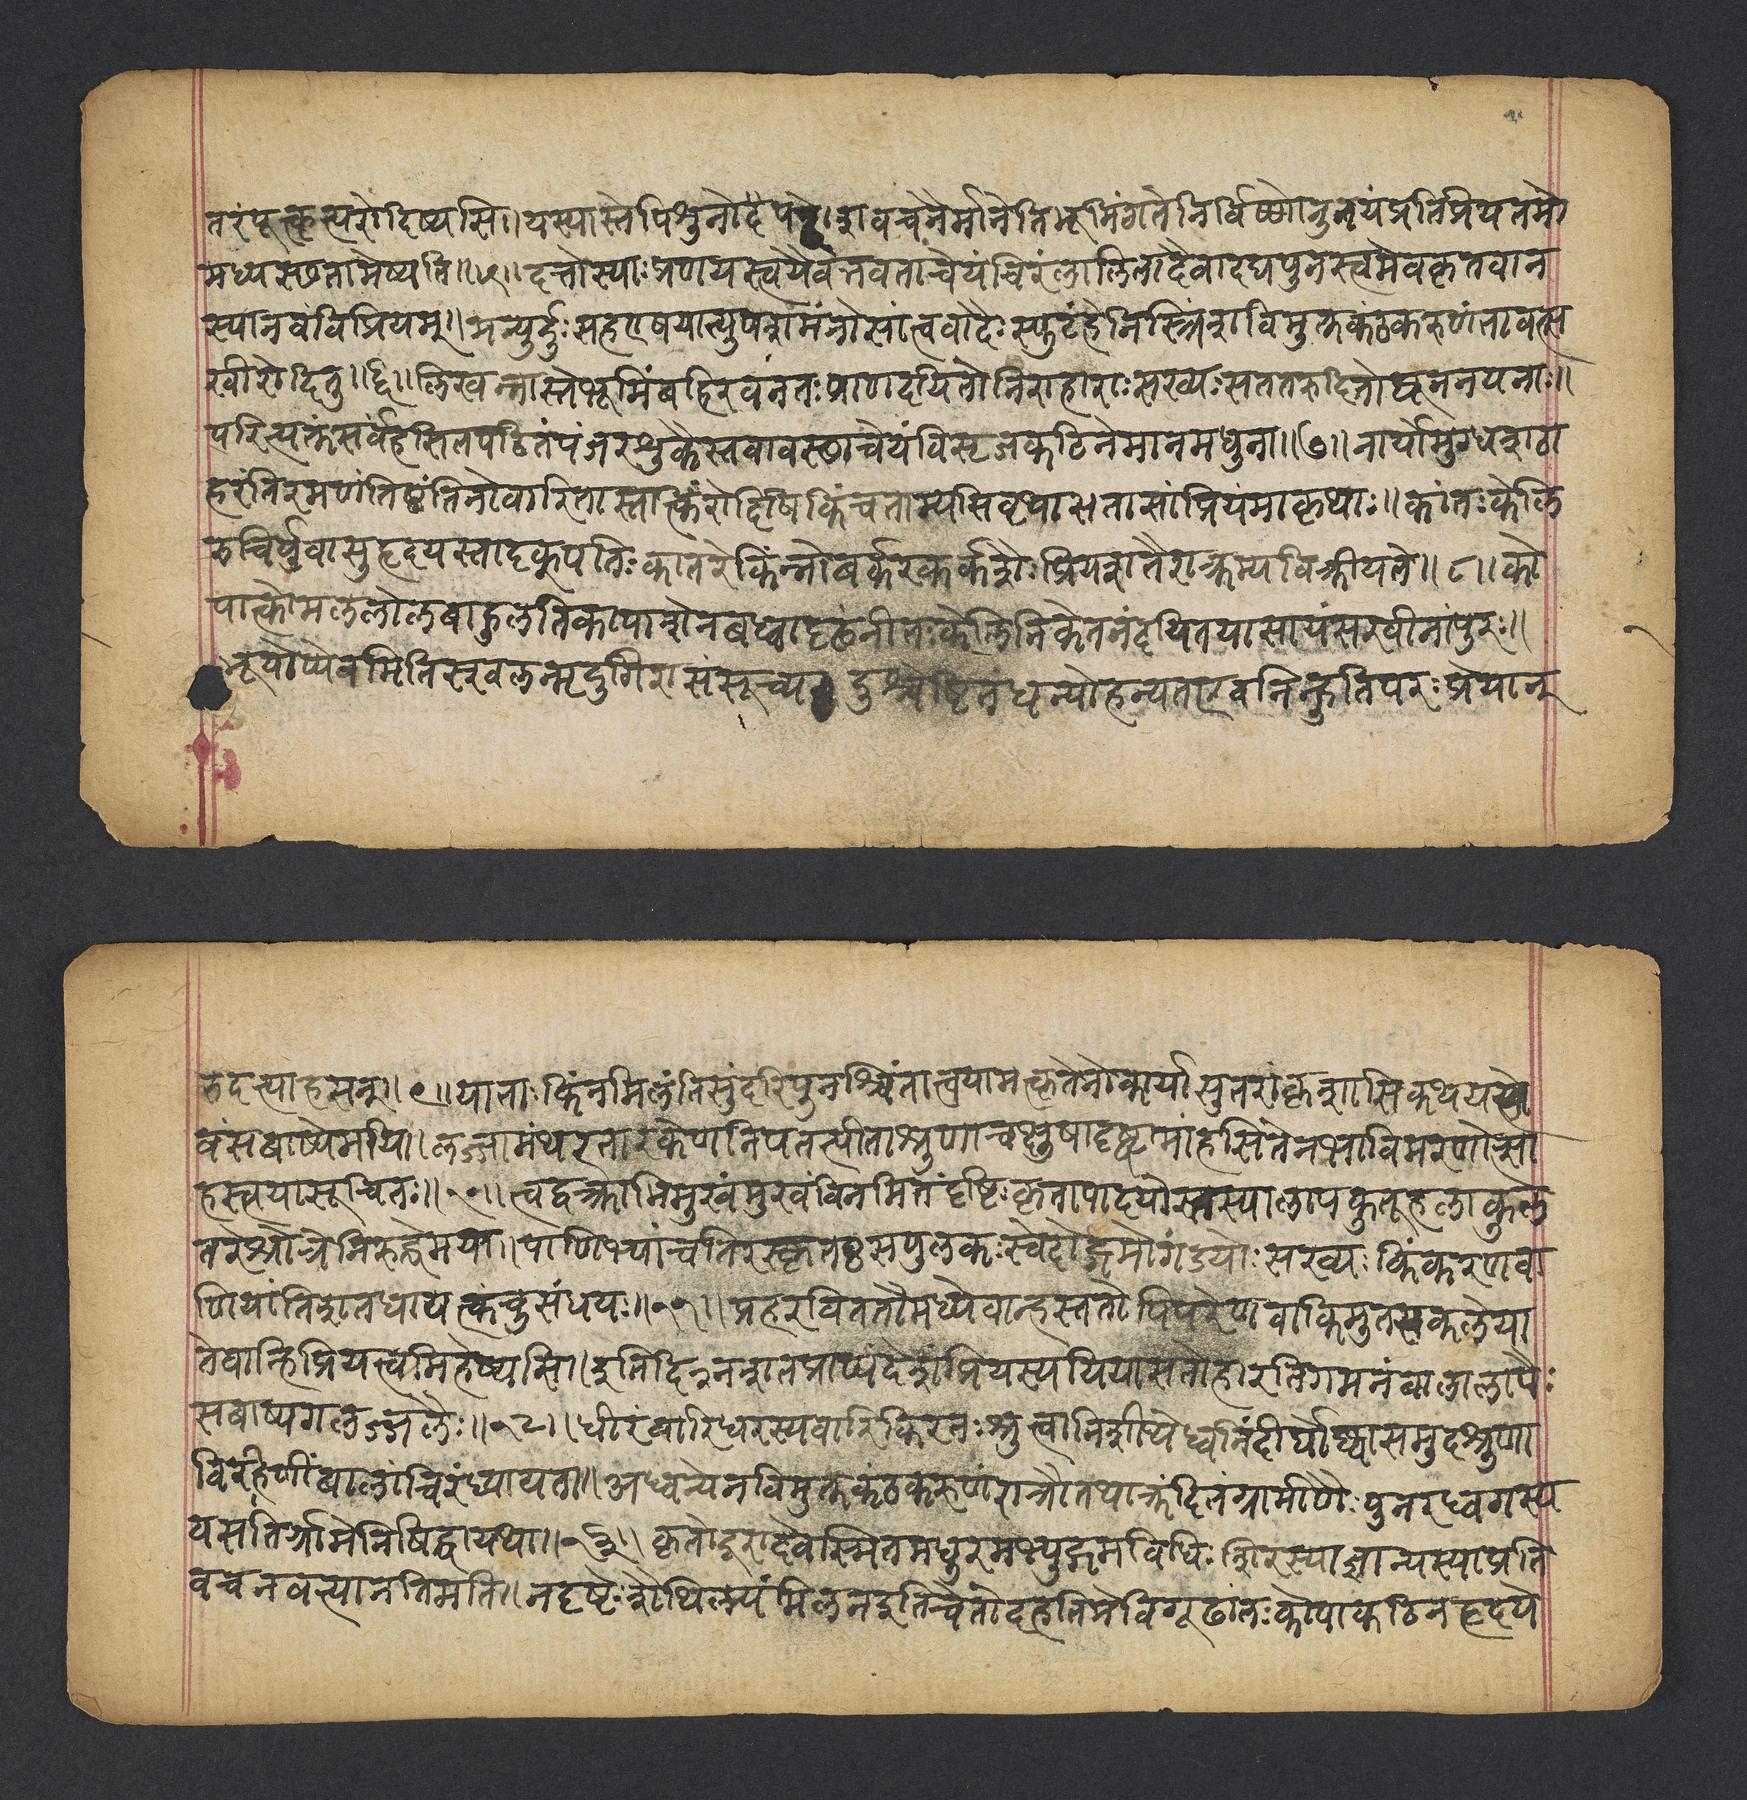 तरंफूत्कृत्यरोदिष्यसि॥यस्यास्तेपिशुनोदयपरुषावचनैर्मानेतिभूमिंगतेनिर्विण्णोनुनयंप्रतिप्रियतमो
मध्यस्छतामेष्यति॥५॥दत्तोस्याःप्रणयस्त्वयैवभवताचेयंचिरंलालितादैवादद्यपुनस्त्वमेवकृतवान
स्यानवंविप्रियम्॥मन्युर्दुःसहएषयात्युपशमंनोसांत्ववादैःस्फुटंहेनिस्त्रिंशविमुक्तकंठकरुणंतावत्स
खीरोदितु॥६॥लिखन्नास्तेभूमिंबहिरवनतःप्राणदयितोनिराहाराःसख्यःसततरुदितोच्छूननयनाः॥
परित्यक्तंसर्वंहसितपठितंपंजरशुकैस्तवावस्छाचेयंविसृजकठिनेमानमधुना॥७॥नार्योमुग्धशठा
हरंतिरमणंतिष्ठंतिनोवारितास्तत्किंरोदिषिकिंचताम्यसिवृथासतासांप्रियंमाकृथाः॥कांतःकेलि
रुचिर्युवासुहृदयस्तादृक्पतिःकातरेकिंन्नोबर्करकर्करैःप्रियशतैराक्रम्यविक्रीयते॥८॥को
पात्कोमललोलबाहुलतिकापाशेनबध्वादृढंनीतःकेलिनिकेतनंदयितयासायंसखीनांपुरः॥
भूयोप्येवमितिस्खलन्मृदुगिरासंसूच्यदुश्चेष्टितंधन्योहन्यतएवनिन्हुतिपरःप्रेयान्
रुदत्याहसन्॥९॥याताःकिंनमिलंतिसुंदरिपुनश्चिंतात्वयामत्कृतेनोकार्यासुतरांकृशासिकथयत्ये
वंसबाष्पेमयि॥लज्जामंथरतारकेणनिपतत्पीताश्रुणाचक्षुषादृष्ट्वामांहसितेनभाविमरणोत्सा
हस्त्वयासूचितः॥१०॥त्वद्वक्त्राभिमुखंमुखंविनमितंदृष्टिःकृतापादयोस्तस्यालापकुतूहलाकुल
तरश्रोत्रेनिरुद्धेमया॥पाणिभ्यांचतिरस्कृतःसपुलकःस्वेदोद्गमोगंडयोःसख्यःकिंकरणवा
णियांतिशतधायत्कंचुसंधयः॥११॥प्रहरविततौमध्येवान्हस्ततोपिपरेणवाकिमुतसकलेया
तेवान्हिप्रियत्वमिहैष्यसि॥इतिदिनशतप्राप्यंदेशंप्रियस्ययियासतोहारतिगमनंबालालापैः
सबाष्पगलज्जलैः॥१२॥धीरंवारिधरस्यवारिकिरतःश्रुत्वानिशीथेध्वनिंदीर्घोच्छ्वासमुदश्रुणा
विरहिणींबालांचिरंध्यायता॥अध्वन्येनविमुक्तकंठकरुणंरात्रौतथाक्रंदितंग्रामीणैःपुनरध्वगस्य
वसतिर्ग्रामेनिषिद्धायथा॥१३॥कृतोदूरादेवस्मितमधुरमभ्युद्गमविधिःशिरस्याज्ञान्यस्याप्रति
वचनवत्यानतिमति॥नदृष्टेःशैथिल्यंमिलनइतिचेतोदहतिमेविगूढांतःकोपाकठिनहृदये